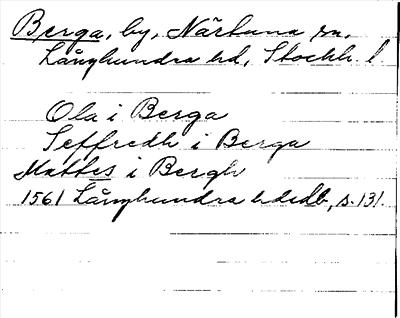 Berga, by, Närtuna sn,
Långhundra hd, Stockh. l.
Ola i Berga
Seffredh i Berga
Mattes i Bergh
1561 Långhundra hdsdb, s. 131.